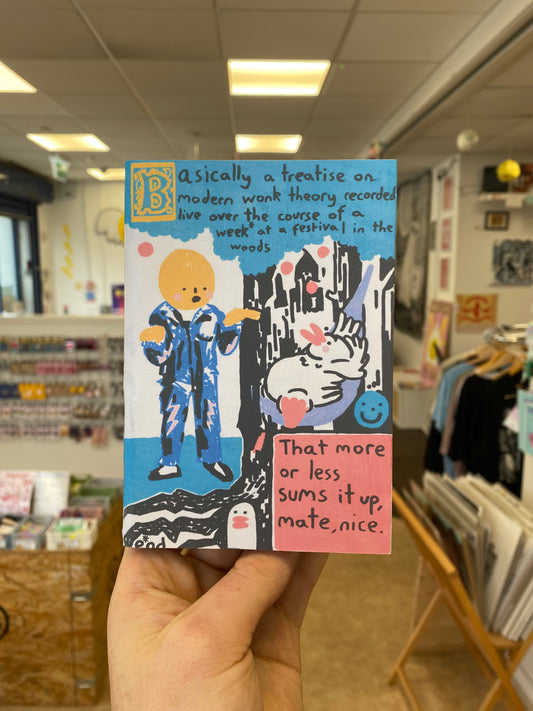 Basically a treatise on
modern wonk theory recorded
live over the course of a
week* at a festival in the
woods
That more
or less
sums it up,
mate, nice.